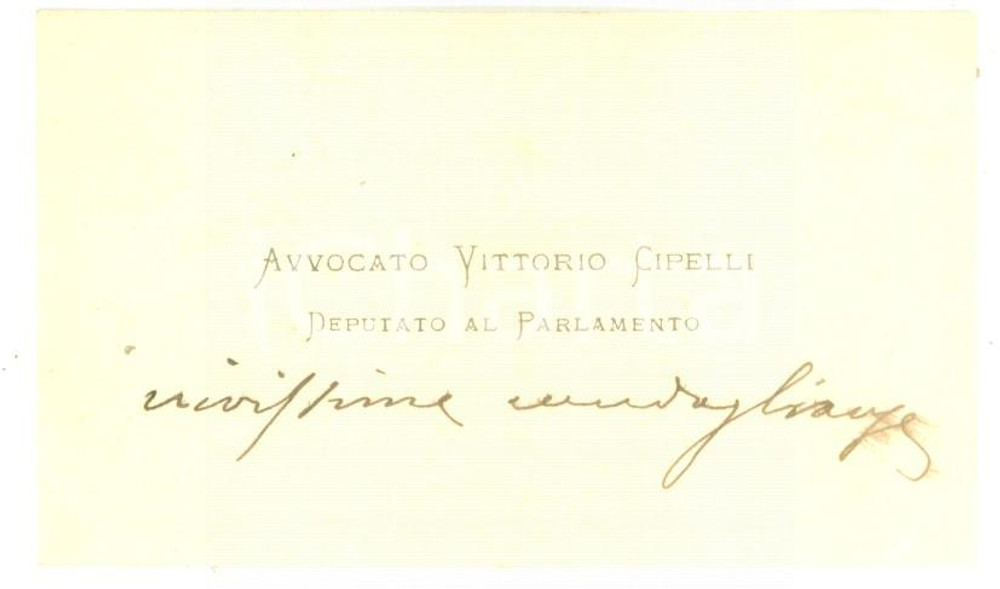 AVVOCATO VITTORIO CIPELLI
DEPUTATO AL PARLAMENTO
vivissime condoglianze